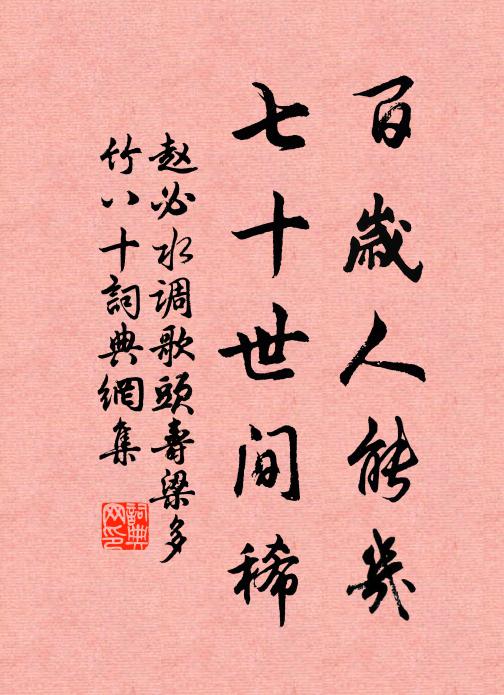 百歲人能幾
七十世间稀
赵必水调歌頭壽梁多
竹八十詞典網集
詞典网印